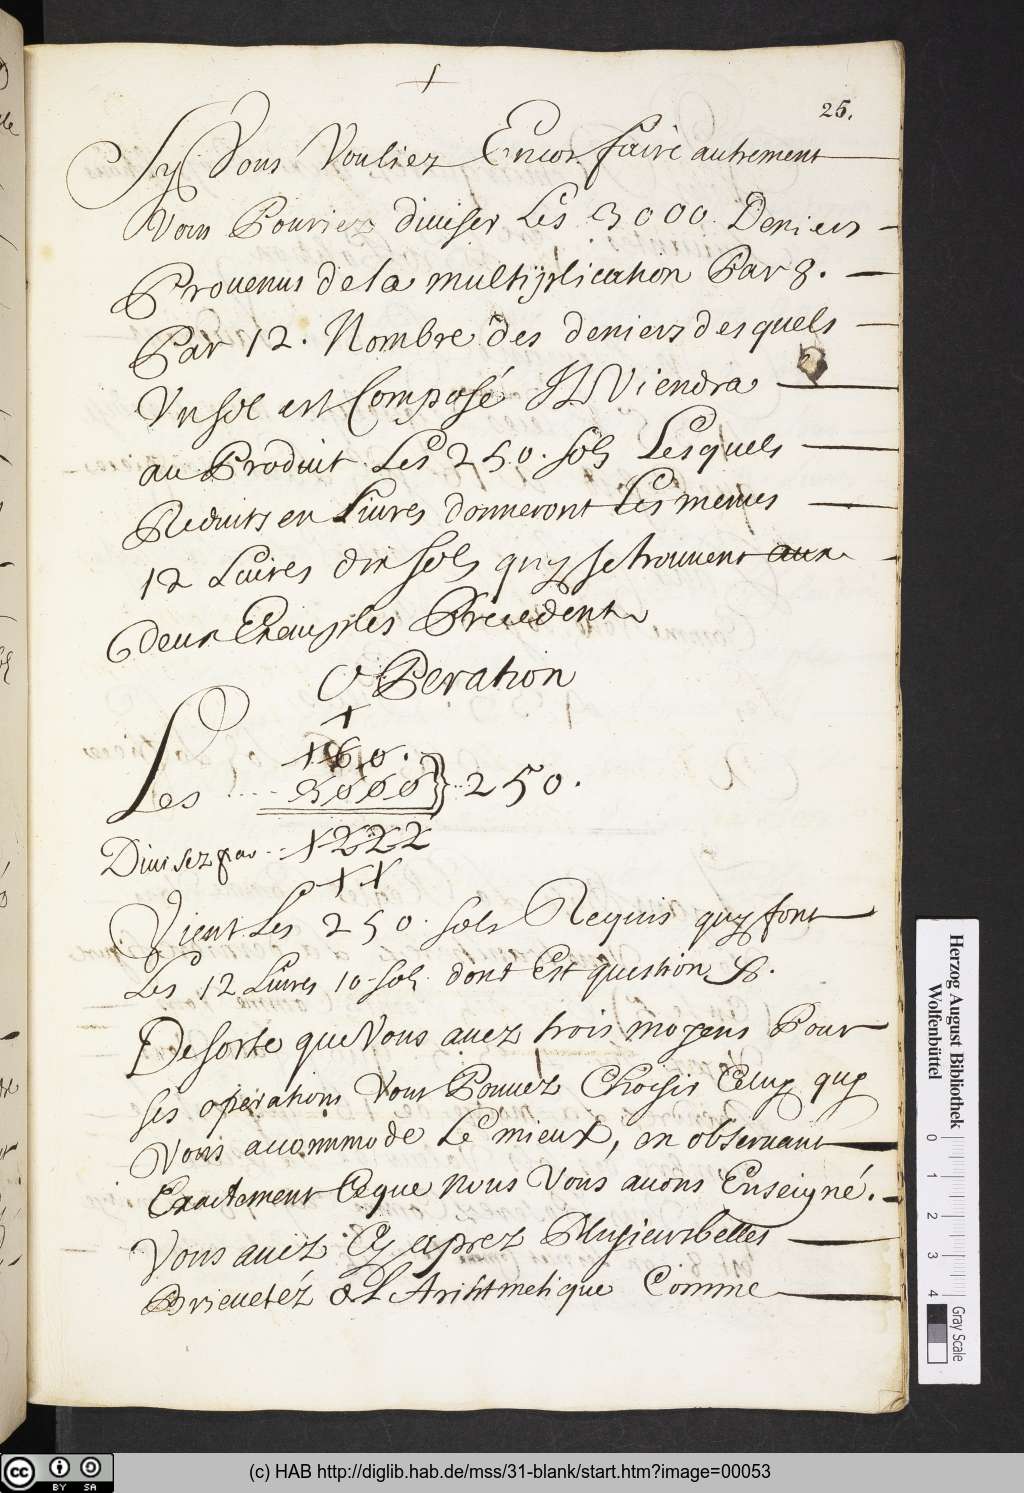 25.
Sy Vous Vouliez Encor faire autrement
Vous Pouriez diuiser Les 3000 Deniers
Prouenus de la multiplication Par 8.
Par 12. Nombre des deniers desquels
Vn sol est Composé IL Viendra
au Produit Les 250. sols Lesquels
Reduits en Liures donneront Les memes
12 Liures dix sols quy se trouuent aux
deux Exemples Precedents
OPeration
+
160.
Les .... 3000 } 250.
Diuisez par .. 1222
11
Vient Les 250. sols Requis quy font
Les 12 Liures 10 sols dont Est question
De sorte que Vous auez trois moyens Pour
ses operations Vous Pouuez Choisir Celuy quy
Vous acommode Le mieux, en obseruant
Exactement Ceque nous Vous auons Enseigné.
Vous auez Cy aprez Plusieurs belles
Brieuetéz de L Arithmetique Comme
Herzog August Bibliothek
Wolfenbüttel
0 1 2 3 4
Gray Scale
cc BY SA
(c) HAB http://diglib.hab.de/mss/31-blank/start.htm?image=00053